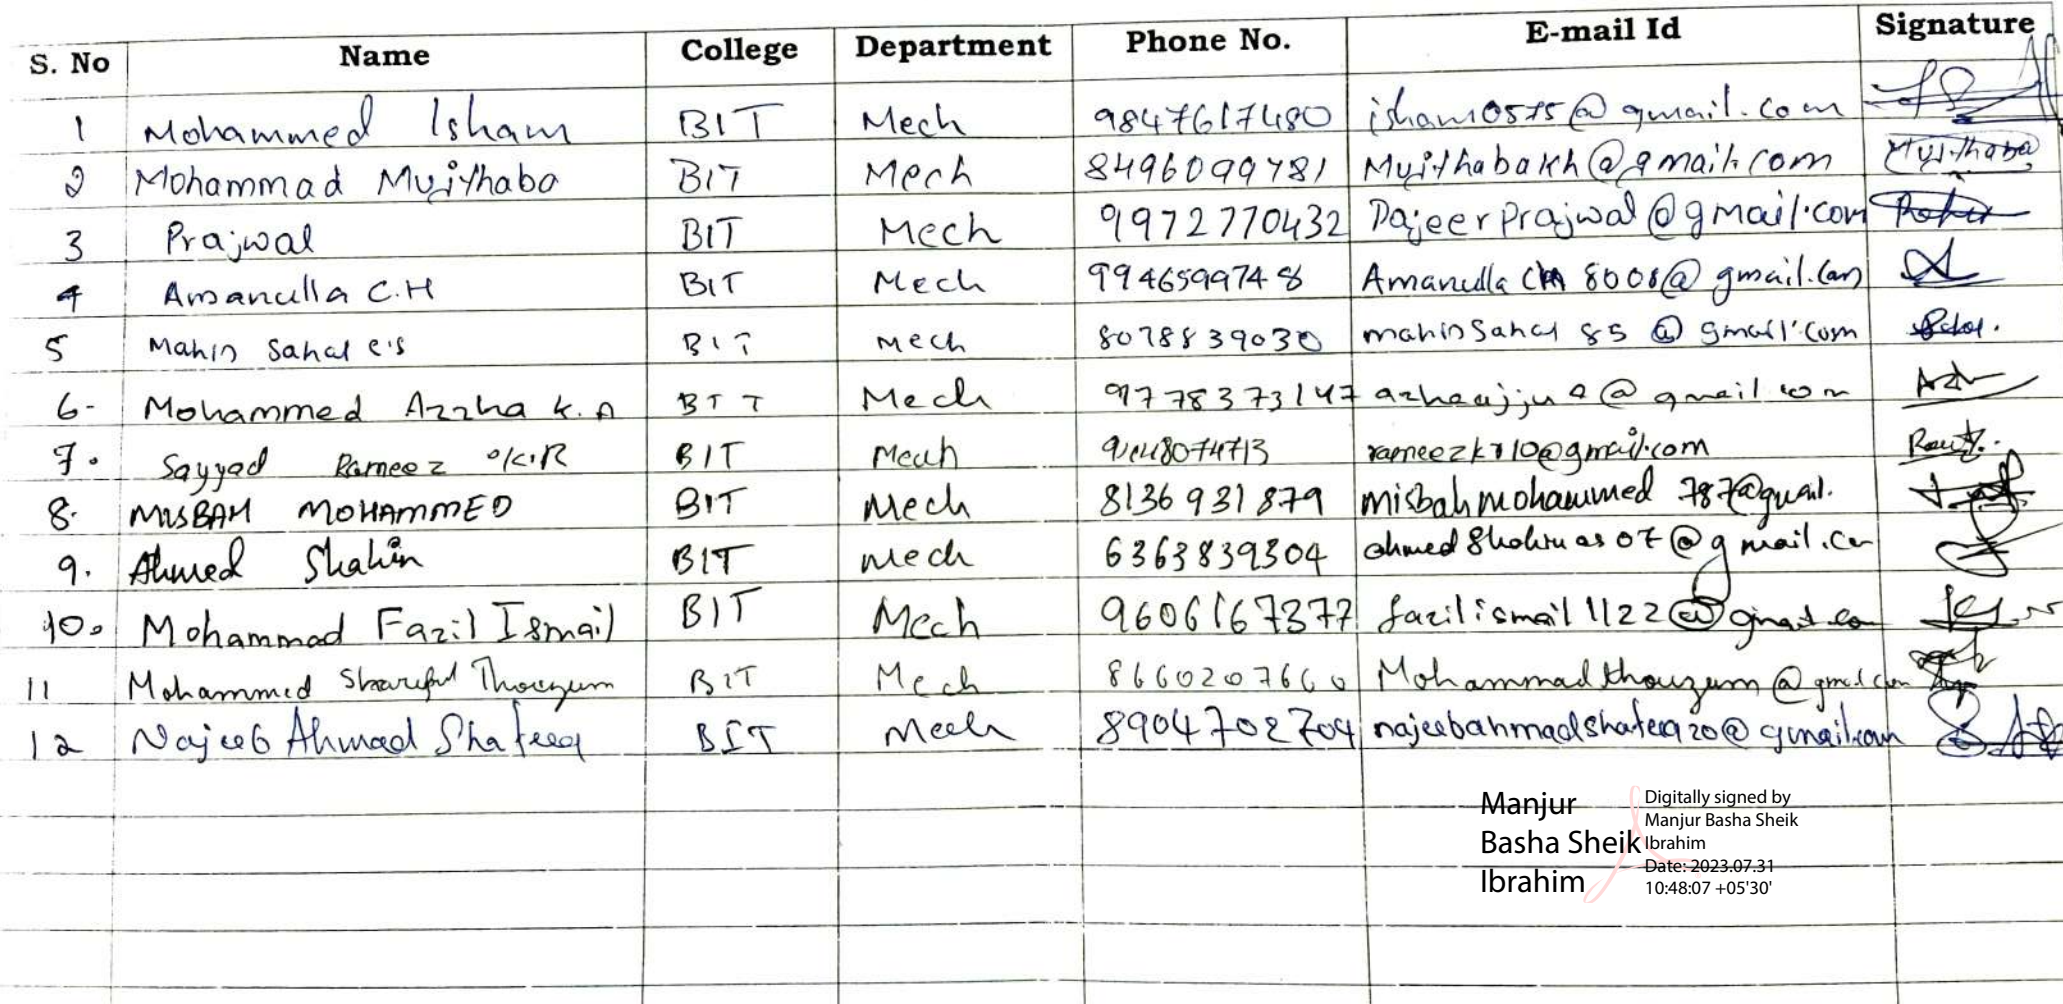 S. No Name College Department Phone No. E-mail Id Signature
1 Mohammed Isham BIT Mech 9847617480 isham0575@gmail.com
2 Mohammad Mujthaba BIT Mech 8496099781 Mujthabakh@gmail.com Mujthaba
3 Prajwal BIT Mech 9972770432 Pajeerprajwal@gmail.com
4 Amanulla C.H BIT Mech 9946599748 Amanulla 8008@gmail.com
5 Mahin Sahal e's BIT Mech 8078839030 mahinsahal 85 @ gmail.com
6- Mohammed Azzha K.A BIT Mech 9778373147 @ gmail.com
7. Sayyad Rameez K.R BIT Mech rameezkr10@gmail.com
8. MISBAH MOHAMMED BIT Mech 8136931879 misbahmohammed 787@gmail.
9. Ahmed Shahin BIT Mech 6363839304 ahmedshahinas07@gmail.com
10. Mohammad Fazil Ismail BIT Mech 9606167377 fazilismail1122@gmail.com
11 Mohammed Shareful Thouzum BIT Mech 8660207660 Mohammadthouzum@gmail.com
12 Najeeb Ahmad Shafeeq BIT Mech 8904702704 @gmail.com
Manjur
Basha Sheik
Ibrahim
Digitally signed by
Manjur Basha Sheik
Ibrahim
Date: 2023.07.31
10:48:07 +05'30'